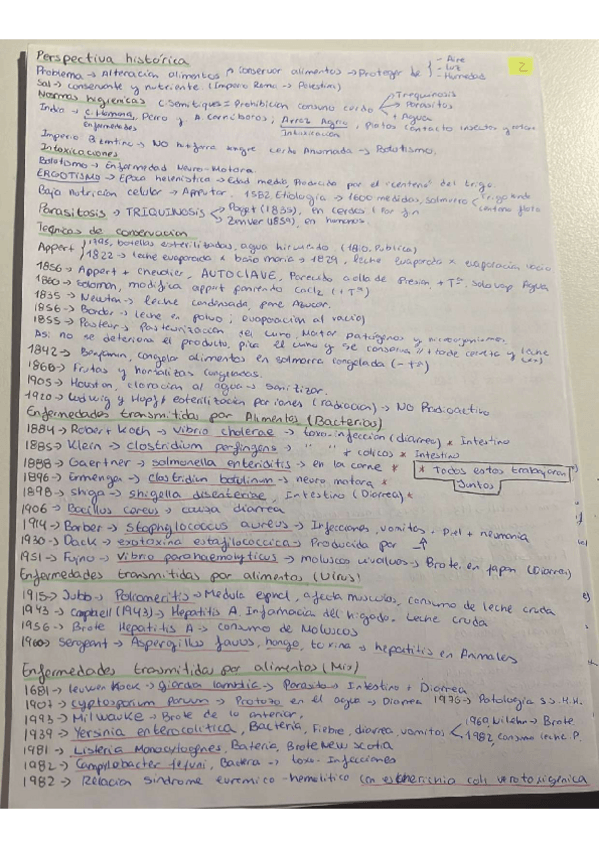 Perspectiva histórica
2
Problema → Alteración alimentos, conservar alimentos → Proteger de { - Aire - Luz - Humedad
Sal → conservante y nutriente. (Imperio Romi → Palestini)
Normas higienicas C. Semitiques = Prohibición consumo cerdo Trequinosis Parasitos
India → C. Humana, Perro y A. carniboros, Arroz Agrio, Platos contacto insectos y ratas + Agua
Enfermedades Intoxicación
Imperio Bizantino → NO sangre Leche → Botulismo.
Intoxicaciones
Botulismo → Enfermedad Neuro-Motora.
ERGOTISMO → Epoca helenistica → Edad media, Producida por el "centeno" del trigo.
Baja nutrición celular → Amputar. 1582 Etiologia → 1600 medidas, salmuera Trigo centeno flota
Parasitosis → TRIQUINOSIS Paget (1835), en Zenver (1859), en humanos.
Tecnicas de conservación
Appert { 1795, botellas esterilizadas, agua hirviendo. (1810. Publica)
1822 → leche evaporada x baño maria → 1829, leche evaporada x evaporación vacio
1856 → Appert + chevalier, AUTOCLAVE, Parecido a olla de Presion, + Tª. Solo vap Agua
1860 → Solomon, modifica appert poniendo CaCl2 (↑Tª)
1835 → Newton → leche condensada, pone Azucar.
1856 → Borden → leche en polvo; evaporación al vacio)
1855 → Pasteur → Pasteurización del vino, Matar patógenos y microorganismos.
Asi no se deteriora el producto, y se conserva + tarde cerveza y leche
1842 → Benjamin, congelar alimentos en salmorra congelada (-Tª)
1868 → Frutas y hortalizas congeladas.
1905 → Houston, cloración al agua → Sanitizar.
1920 → Ludwig y Hopf, esterilización por iones (radiacion) → NO Radioactivo
Enfermedades transmitidas por Alimentos (Bacterias)
1884 → Robert Koch → Vibrio cholerae → toxo-infeccion (diarrea) * Intestino
1885 → Klein → clostridium perfingens → " " + colicos * Intestino
1888 → Gaertner → salmonella enteriditis → en la carne * * Todos estos trabajaron Juntos
1896 → Ermenga → clostridium botulinum → neuro motora *
1898 → shiga → shigella disenteriae, Intestino (Diarrea) *
1906 → Bacillus cereus → causa diarrea
1914 → Barber → Staphylococcus aureus → Infecciones, vomitos. Piel + neumonia
1930 → Dack → exotoxina estafilococcica → Producida por ↑
1951 → Fujno → Vibrio parahaemolyticus → moluscos vivalvos → Brote en Japon (Diarrea)
Enfermedades transmitidas por alimentos (Virus)
1915 → Jubb → Poliomeritis → Medula espinel, afecta musculos, consumo de leche cruda
1943 → Campbell (1943) → Hepatitis A. Inflamación del higado. Leche cruda
1956 → Brote Hepatitis A → consumo de Moluscos
1960 → Sergeant → Aspergillus favus, hongo, toxina → hepatitis en Animales
Enfermedades trasmitidas por alimentos (Mix)
1681 → Leuwen Hook → giardia lambtic → Parasito → Intestino + Diarrea
1907 → cyptosporium parvum → Protozo en el agua → Diarrea 1976 → Patologia s.s. H.H.
1993 → Milwauke → Brote de lo anterior.
1939 → Yersinia enterocolitica, Bacteria, Fiebre, diarrea, vomitos 1969, Nilehn → Brote 1982, consumo leche P.
1981 → Listeria Monocytogenes, Bateria, Brote New scotia
1982 → Campilobacter jejuni, Bacteria → toxo-Infecciones
1982 → Relacion sindrome euremico-hemolitico con escherichia coli verotoxigénica